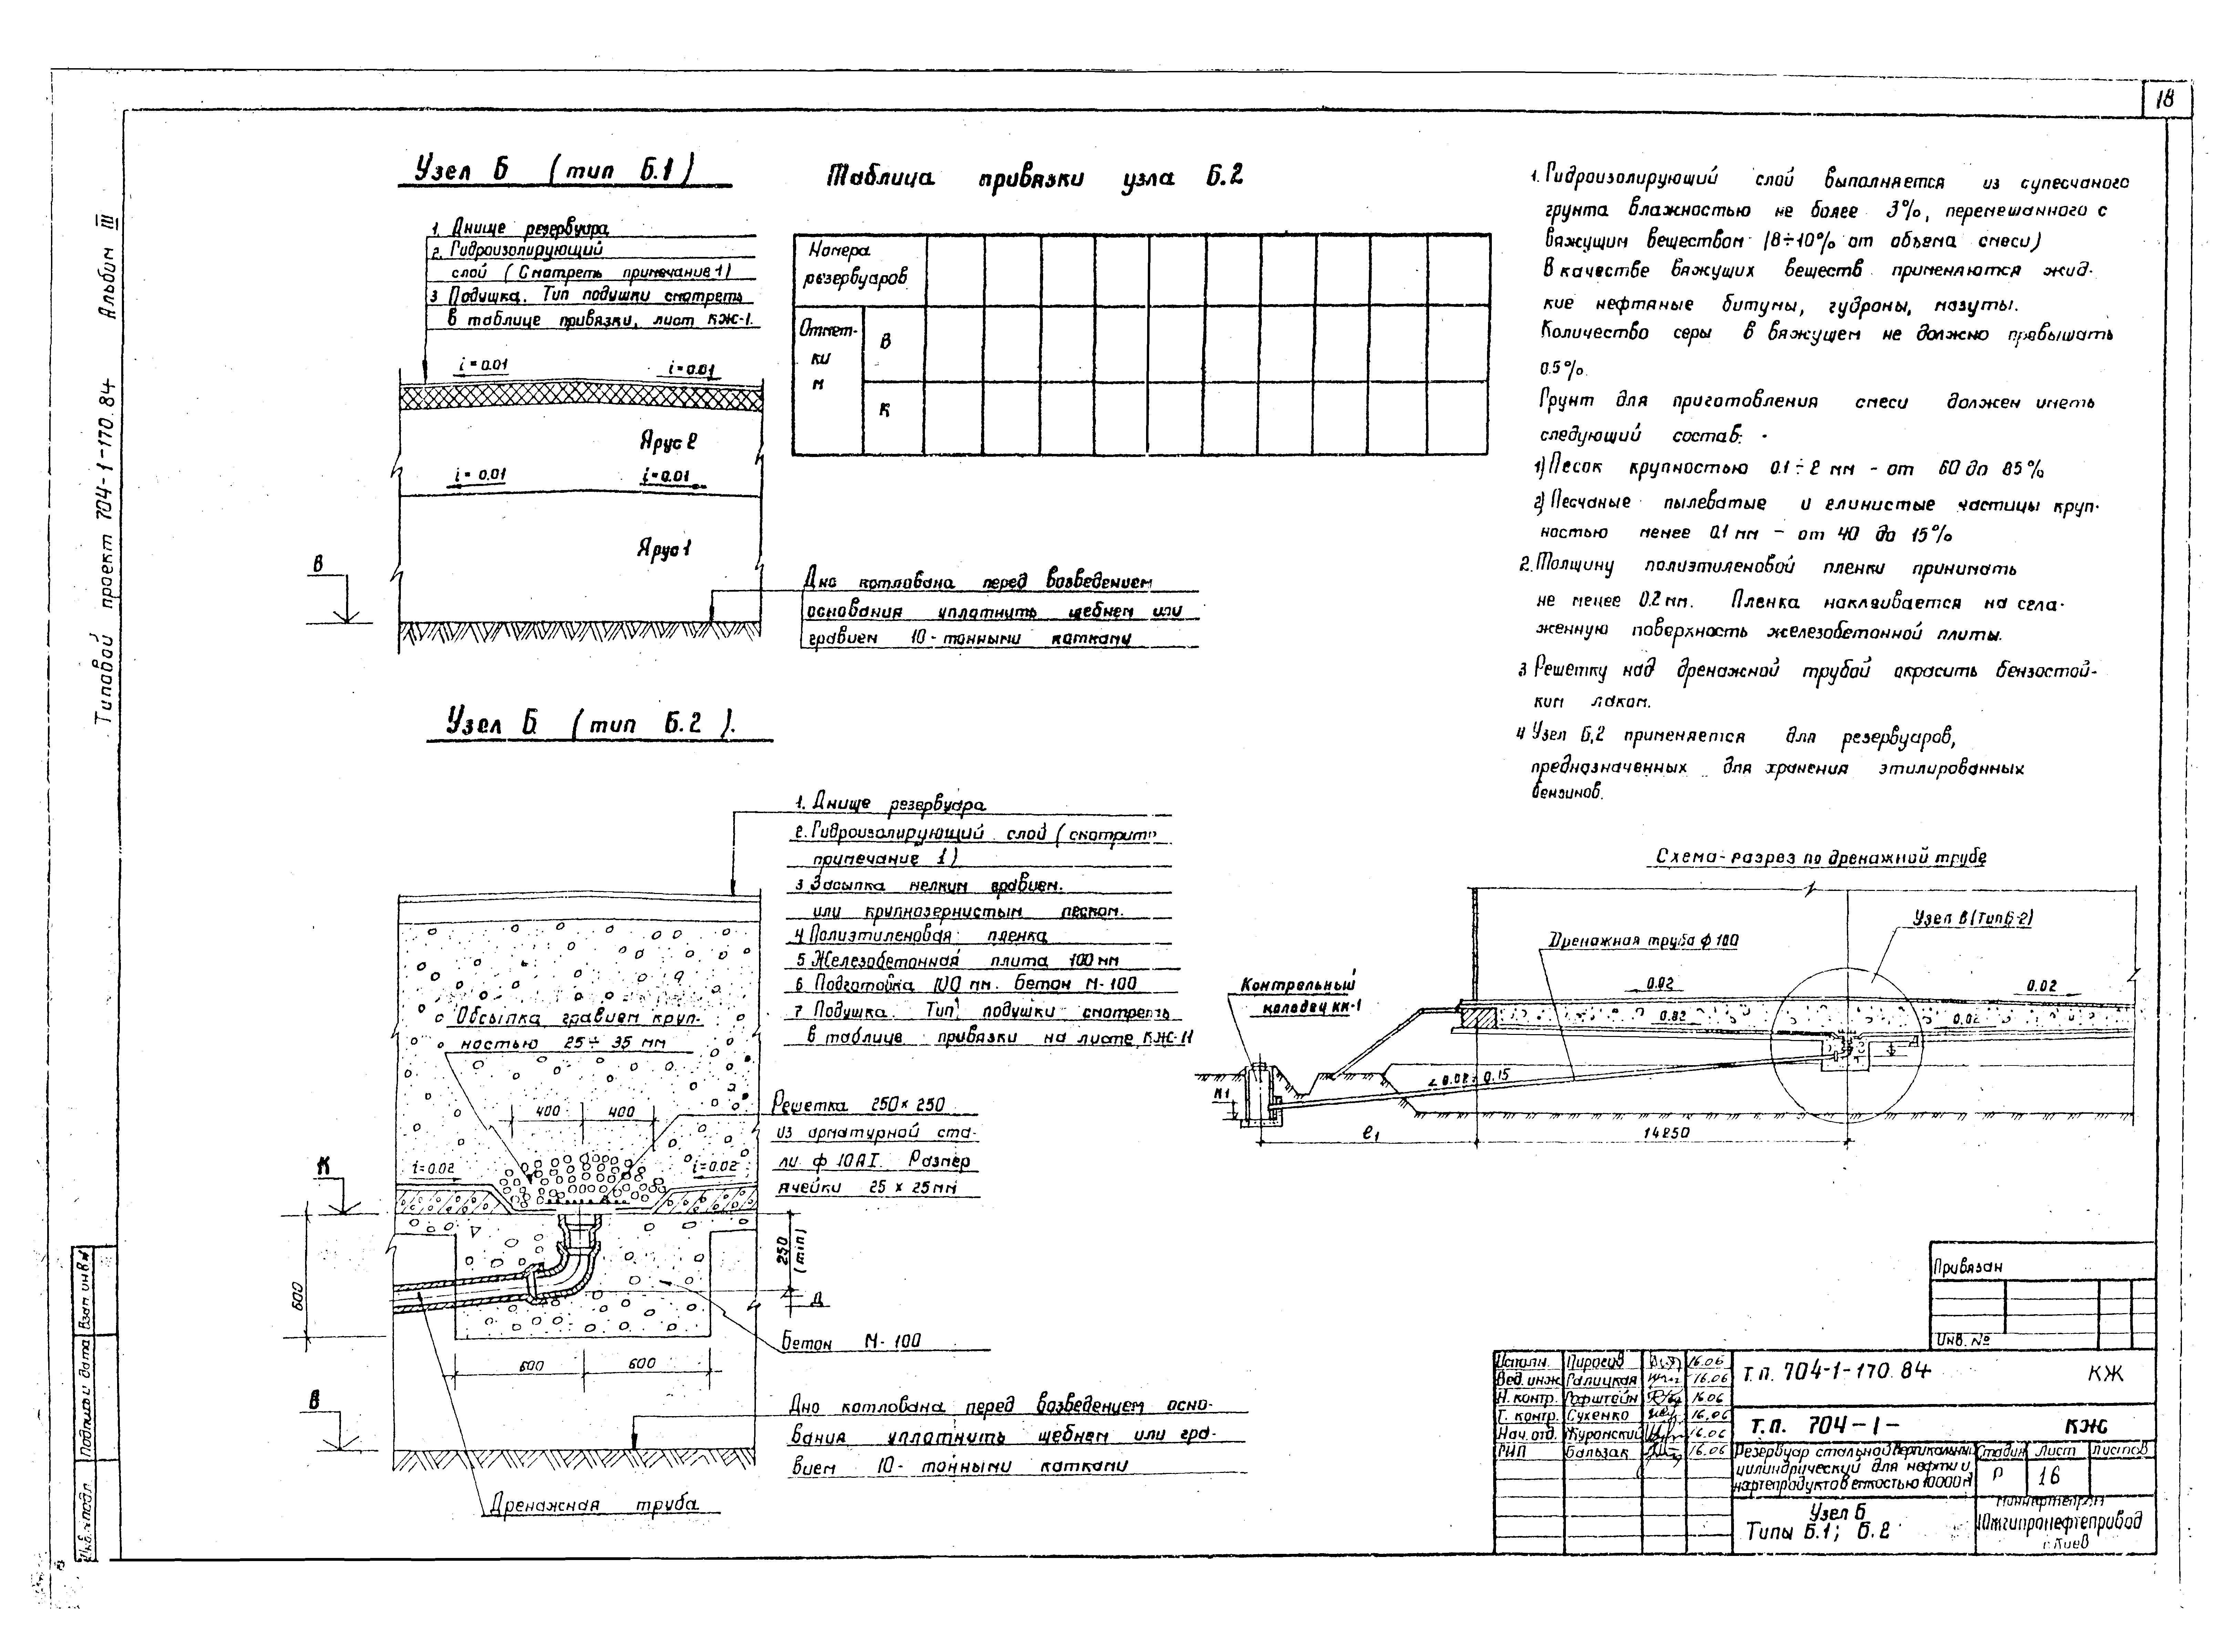 18
Типовой проект 704-1-170.84 Альбом III
Узел Б (тип Б.1)
1. Днище резервуара
2. Гидроизолирующий
слой (Смотреть примечание 1)
3 Подушка. Тип подушки смотреть
в таблице привязки, лист КЖ-1.
i=0.01
i=0.01
Ярус 2
i=0.01
i=0.01
Ярус 1
В
Дно котлована перед возведением
основания уплотнить щебнем или
гравием 10-тонными катками
Таблица привязки узла Б.2
Номера
резервуаров
Отмет-
ки
м
В
К
1. Гидроизолирующий слой выполняется из супесчаного
грунта влажностью не более 3%, перемешанного с
вяжущим веществом (8÷10% от объема смеси)
В качестве вяжущих веществ применяются жид-
кие нефтяные битумы, гудроны, мазуты.
Количество серы в вяжущем не должно превышать
0.5%.
Грунт для приготовления смеси должен иметь
следующий состав:
1) Песок крупностью 0.1÷2 мм - от 60 до 85%
2) Песчаные пылеватые и глинистые частицы круп-
ностью менее 0.1 мм - от 40 до 15%
2. Толщину полиэтиленовой пленки принимать
не менее 0.2 мм. Пленка наклеивается на сгла-
женную поверхность железобетонной плиты.
3 Решетку над дренажной трубой окрасить бензостой-
ким лаком.
4 Узел Б,2 применяется для резервуаров,
предназначенных для хранения этилированных
бензинов.
Узел Б (тип Б.2).
1. Днище резервуара
2. Гидроизолирующий слой (смотрить
примечание 1)
3 Засыпка мелким гравием.
или крупнозернистым песком.
4 Полиэтиленовая пленка
5 Железобетонная плита 100 мм
6 Подготовка 100 мм. Бетон М-100
7 Подушка. Тип подушки смотреть
в таблице привязки на листе КЖ-11
Обсыпка гравием круп-
ностью 25÷35 мм
400 400
Решетка 250×250
из арматурной ста-
ли ф 10АI. Размер
ячейки 25×25мм
К
i=0.02
i=0.02
600
250
(min)
Д
Бетон М-100
600 600
В
Дно котлована перед возведением осно-
вания уплотнить щебнем или гра-
вием 10-тонными катками
Дренажная труба
Схема-разрез по дренажной трубе
Узел В (Тип Б-2)
Дренажная труба ф 100
Контрольный
колодец КК-1
0.02
0.02
0.02
0.02
Д
∠0.02÷0.15
М1
е₁
14250
Привязан
Инв. №
Исполн. Пирогов 16.06
Вед. инж Галицкая 16.06
Н. контр. Рофштейн 16.06
Т. контр. Сукенко 16.06
Нач. отд. Журомский 16.06
ГИП Бальзак 16.06
Т.п. 704-1-170.84 КЖ
Т.п. 704-1- КЖ
Резервуар стальной вертикальный
цилиндрический для нефти и
нефтепродуктов емкостью 10000 м³
Стадия Лист Листов
Р 16
Узел Б
Типы Б.1; Б.2
Миннефтепром
Южгипронефтепровод
г. Киев
Инв. № подл Подпись и дата Взам инв №